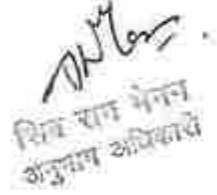 शिव राज मेनन
अनुभाग अधिकारी